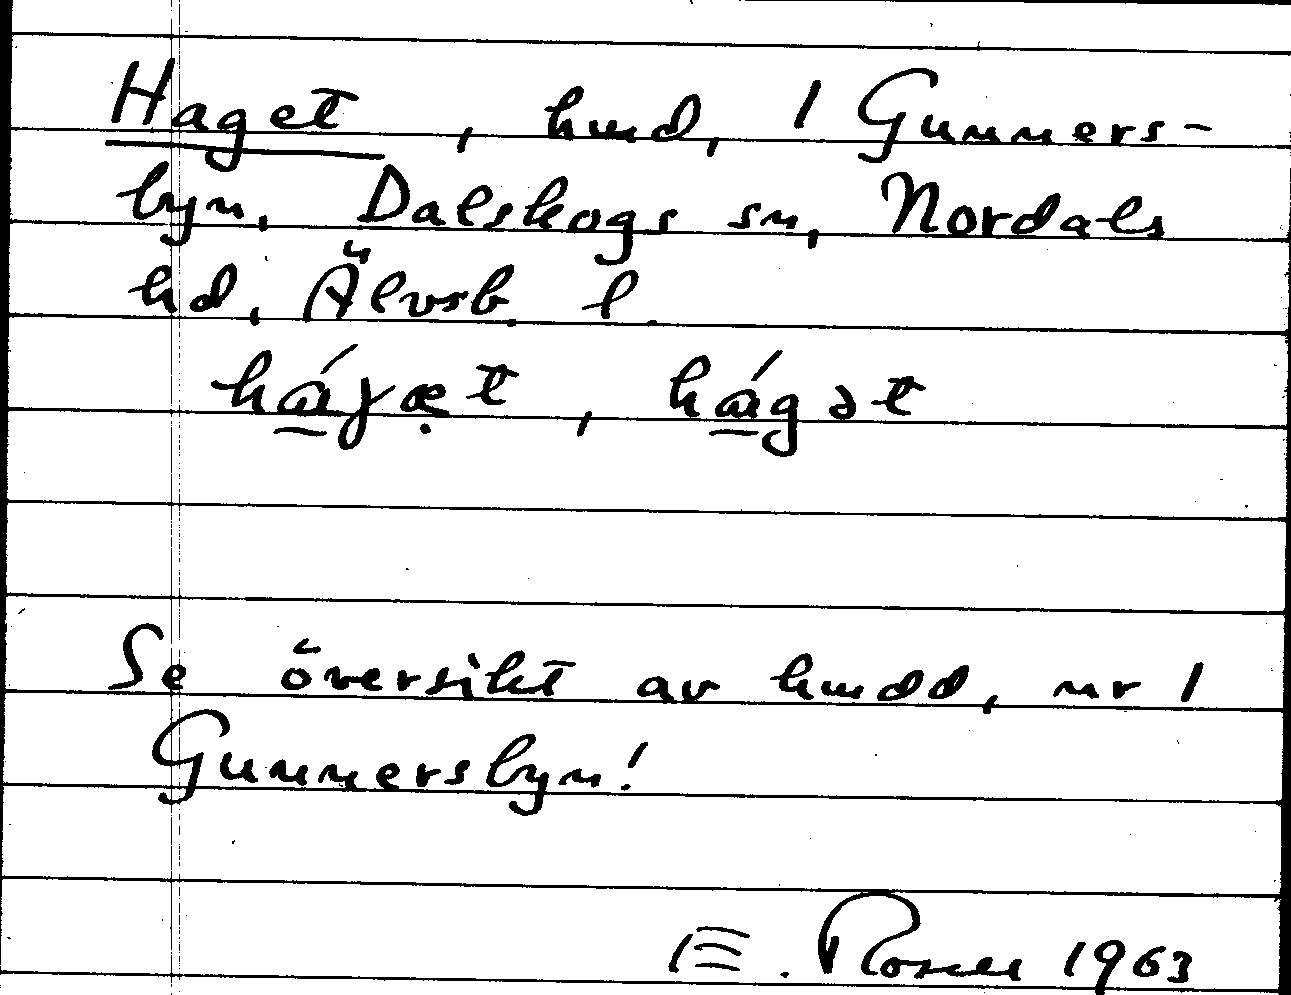 Haget, hmd, 1 Gunners-
byn, Dalskogs sn, Nordals
hd, Älvsb. l.
há̱ꝩæ̣t, há̱gət
Se översikt av hmdd, nr 1
Gunnersbyn!
E. Rosell 1963